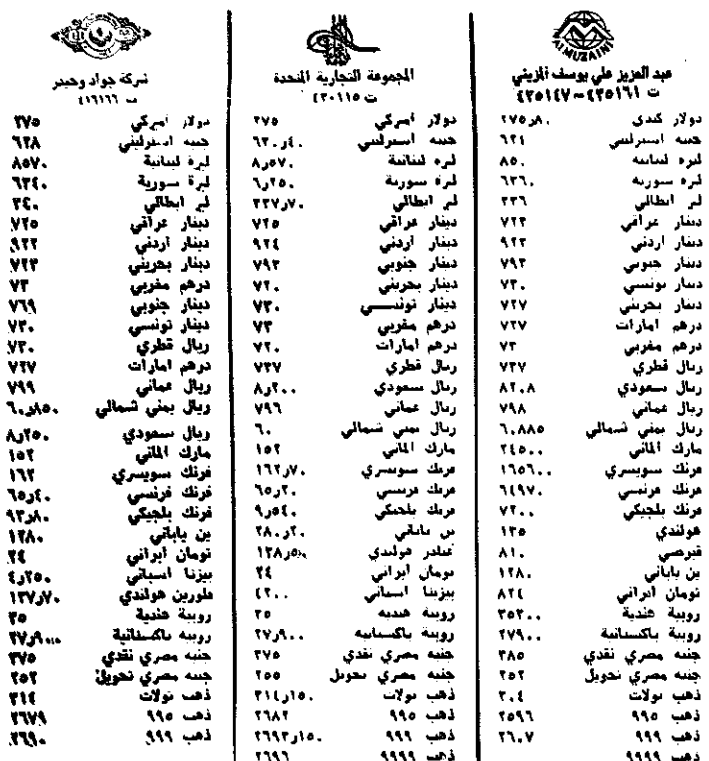 AL MUZAINI
عبد العزيز علي يوسف المزيني
ت ٤٣٥١٦١ ~ ٤٣٥١٤٧
دولار كندي ٢٧٥ر٨٠
جنيه استرليني ٦٢٤
ليرة لبنانية ٨٥٠
ليرة سورية ٦٣٦٠
لير ايطالي ٣٣٦
دينار عراقي ٧٢٣
دينار اردني ٩٢٣
دينار جنوبي ٧٩٣
دينار تونسي ٧٣٠
دينار بحريني ٧٢٧
درهم امارات ٧٢٧
درهم مغربي ٧٣
ريال قطري ٧٣٧
ريال سعودي ٨٢٠٨
ريال عماني ٧٩٨
ريال يمني شمالي ٦٠٨٨٥
مارك الماني ٢٤٥٠٠
فرنك سويسري ١٦٥٦٠٠
فرنك فرنسي ٦٤٩٧٠
فرنك بلجيكي ٧٢٠٠
هولندي ١٣٥
قبرصي ٨١٠
ين ياباني ١٢٨٠
تومان ايراني ٨٢٤
روبية هندية ٣٥٢٠٠
روبية باكستانية ٢٧٩٠٠
جنيه مصري نقدي ٣٨٥
جنيه مصري تحويل ٢٥٢
ذهب تولات ٣٠٤
ذهب ٩٩٥ ٢٥٩٦
ذهب ٩٩٩ ٢٦٠٧
ذهب ٩٩٩٩
المجموعة التجارية المتحدة
ت ٤٣٠١١٥
دولار اميركي ٢٧٥
جنيه استرليني ٦٣٠ر٤٠
ليرة لبنانية ٨ر٥٧٠
ليرة سورية ٦ر٢٥٠
لير ايطالي ٢٣٧ر٧٠
دينار عراقي ٧٢٥
دينار اردني ٩٢٤
دينار جنوبي ٧٩٣
دينار بحريني ٧٢٠
دينار تونسي ٧٣٠
درهم مغربي ٧٣
درهم امارات ٧٢٠
ريال قطري ٧٣٧
ريال سعودي ٨ر٢٠٠
ريال عماني ٧٩٦
ريال يمني شمالي ٦٠
مارك الماني ١٥٢
فرنك سويسري ١٦٢ر٧٠
فرنك فرنسي ٦٥ر٢٠
فرنك بلجيكي ٩ر٥٤٠
ين ياباني ٢٨٠ر٢٠
هولندي
تومان ايراني ٢٤
بيزيتا اسباني ٤٢٠٠
روبية هندية ٣٥
روبية باكستانية ٢٧ر٩٠٠
جنيه مصري نقدي ٣٧٥
جنيه مصري تحويل ٢٥٥
ذهب تولات ٣١٤ر١٥٠
ذهب ٩٩٥ ٢٦٨٢
ذهب ٩٩٩ ٢٦٩٣ر١٥٠
ذهب ٩٩٩٩ ٢٦٩٦
شركة جواد وحيدر
ت ٤١٦١٦٦
دولار اميركي ٢٧٥
جنيه استرليني ٦٢٨
ليرة لبنانية ٨٥٧٠
ليرة سورية ٦٣٤٠
لير ايطالي ٢٤٠
دينار عراقي ٧٢٥
دينار اردني ٩٢٢
دينار بحريني ٧٢٣
درهم مغربي ٧٣
دينار جنوبي ٧٦٩
دينار تونسي ٧٣٠
ريال قطري ٧٣٠
درهم امارات ٧٢٧
ريال عماني ٧٩٩
ريال يمني شمالي ٦٠ر٨٥٠
ريال سعودي ٨ر٢٥٠
مارك الماني ١٥٢
فرنك سويسري ١٦٢
فرنك فرنسي ٦٥ر٤٠
فرنك بلجيكي ٩٣ر٨٠
ين ياباني ١٢٨٠
تومان ايراني ٢٤
بيزتا اسباني ٤ر٢٥٠
فلورين هولندي ١٣٧ر٧٠
روبية هندية ٣٥
روبية باكستانية
جنيه مصري نقدي ٣٧٥
جنيه مصري تحويل ٢٥٢
ذهب تولات ٣١٤
ذهب ٩٩٥ ٢٦٧٩
ذهب ٩٩٩ ٢٦٩٠